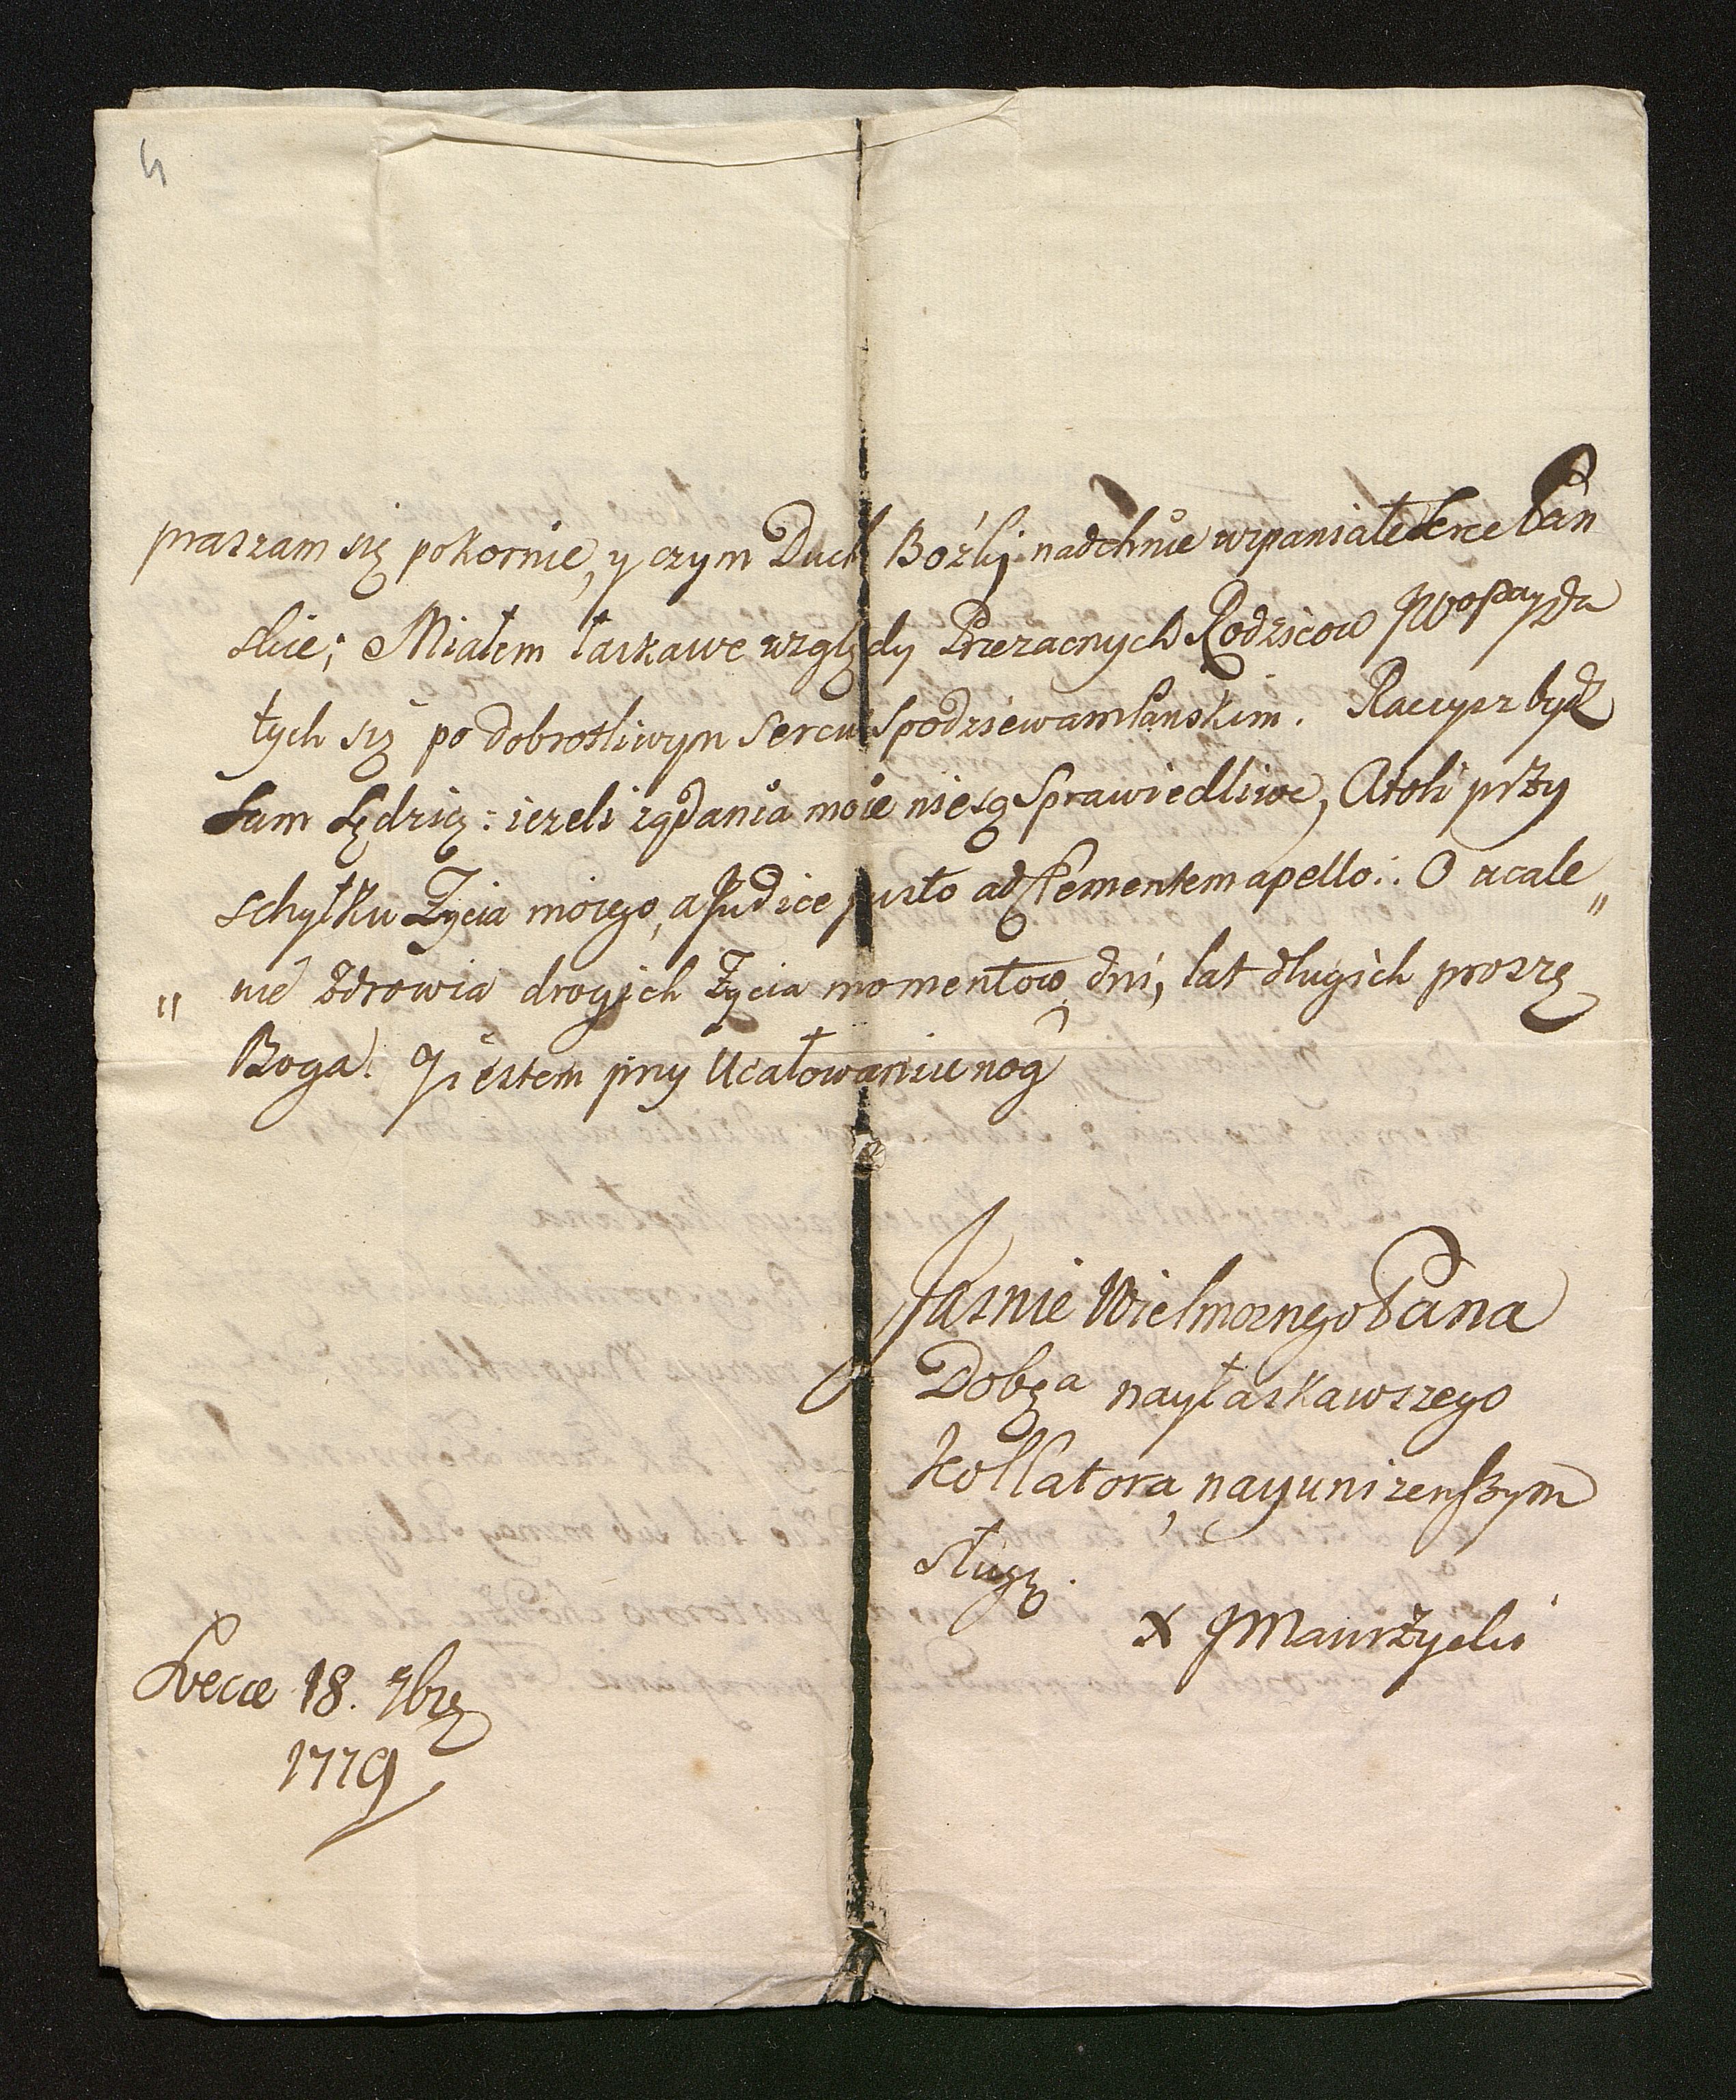 4
praszam się pokornie, y czym Duch Bozki nadchnie wspaniałe Serce Pan
skie; Miałem łaskawe względy Przezacnych Rodzicow JWoPa y Da
tych się po dobrotliwym Sercu Spodziewam Panskim. Raczysz bydz
Sam Sędzią: iezeli ządania moie nie są Sprawiedliwe, Atoli przy
schyłku Zycia moiego, a Judice justo ad Clementem apello: O ucale„
„nie zdrowia drogich Zycia momentow, dni, lat długich proszę
Boga. Jestem przy Ucałowaniu nog
Jasnie Wielmoznego Pana
Dobza nayłaskawszego
Kollatora, nayunizenszym
sługą.
X JMaurzycki
18. 7bra
1779